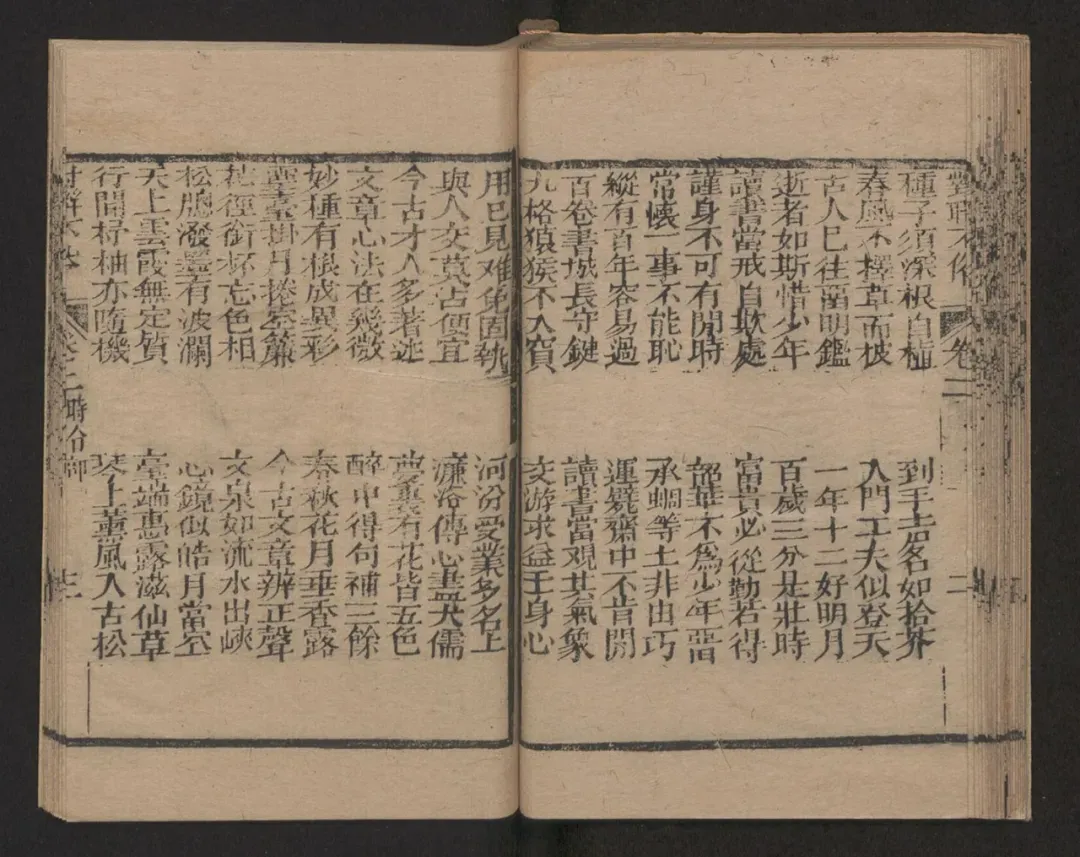 對聯不俗 卷二 二
種子須深根自植
春風不擇草而被
古人已往留明鑑
逝者如斯惜少年
讀書當戒自欺處
謹身不可有閒時
常懷一事不能恥
縱有百年容易過
百卷書城長守鍵
九格猿猴不入賓
到手名如拾芥
入門工夫似登天
一年十二好明月
百歲三分是壯時
富貴必從勤苦得
韶華不為少年留
承蜩等土非出巧
運甓齋中不肯閒
讀書當觀其氣象
交游求益于身心
用已見难免固執
與人交莫占便宜
今古才人多著述
文章心法在幾微
妙種有根成異彩
靈臺掛月捲空簾
花徑銜杯忘色相
松牕潑墨有波瀾
天上雲霞無定質
行間杼柚亦隨機
河汾受業多名上
濂洛傳心盡大儒
夢裏有花皆五色
醉中得句補三餘
春秋花月垂香露
今古文章辨正聲
文泉如流水出峽
心鏡似皓月當空
臺端惠露滋仙草
琴上薰風入古松
對聯不俗 卷二 時令部